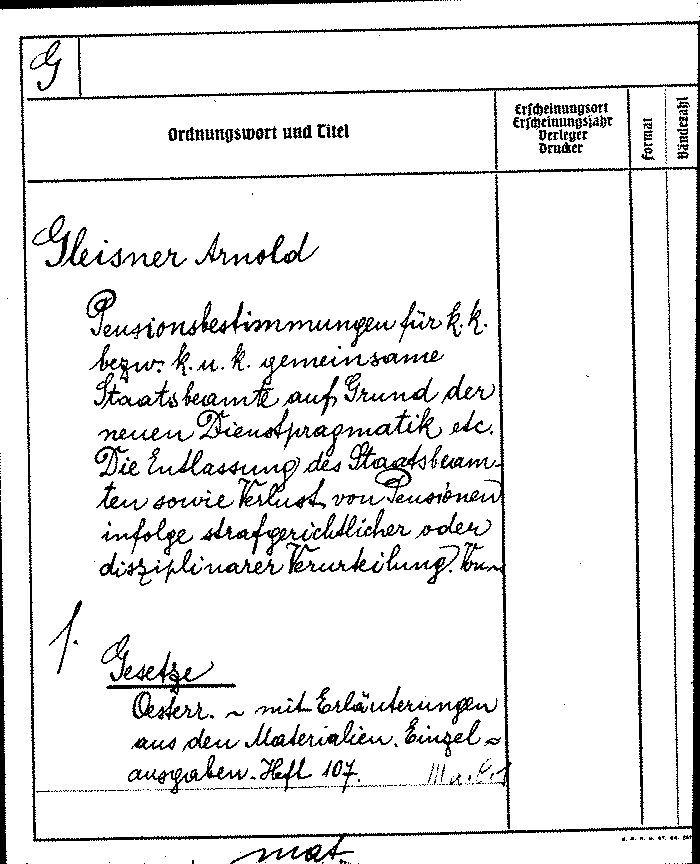 G
Ordnungswort und Titel
Erscheinungsort
Erscheinungsjahr
Verleger
Drucker
Format
Bändezahl
Gleisner Arnold
Pensionsbestimmungen für k.k.
bezw. k. u. k. gemeinsame
Staatsbeamte auf Grund der
neuen Dienstpragmatik etc.
Die Entlassung des Staatsbeam-
ten sowie Verlust von Pensionen
infolge strafgerichtlicher oder
disziplinarer Verurteilung. Von
f.
Gesetze
Oesterr. ~ mit Erläuterungen
aus den Materialien. Einzel=
ausgaben. Heft 107.
mat